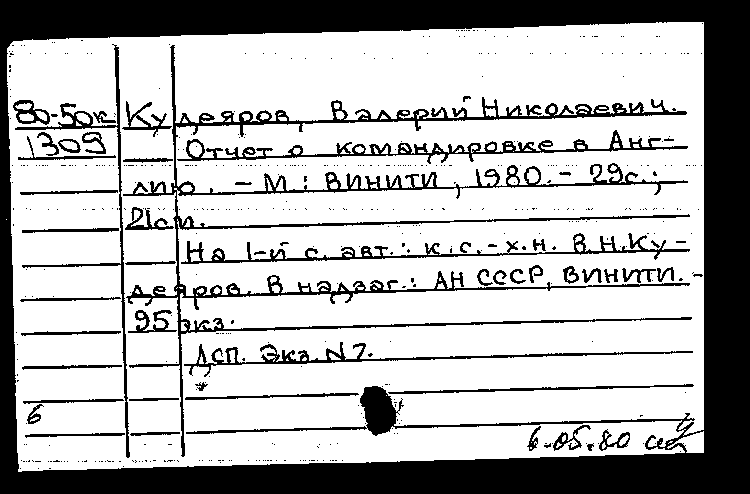 80-50к Кудеяров, Валерий Николаевич.
1309 Отчет о командировке в Анг-
лию. - М.: ВИНИТИ, 1980. - 29с.;
21см.
На 1-й с. авт.: к.с.-х.н. В.Н.Ку-
деяров. В надзаг.: АН СССР, ВИНИТИ. -
95 экз.
Дсп. Экз. N 7.
*
6
6.05.80